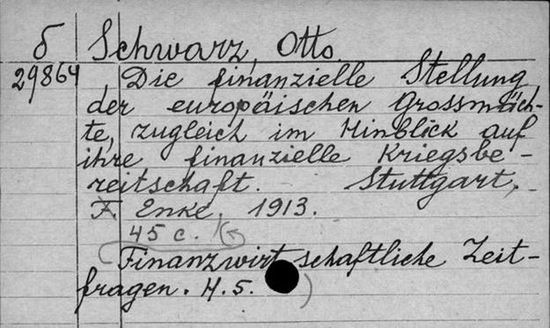 б Schwarz, Otto
29864 Die finanzielle Stellung
der europäischen Grossmäch-
te, zugleich im Hinblick auf
ihre finanzielle Kriegsbe-
reitschaft. Stuttgart,
F. Enke, 1913.
45 c.
(Finanzwirtschaftliche Zeit-
fragen. H. 5.)